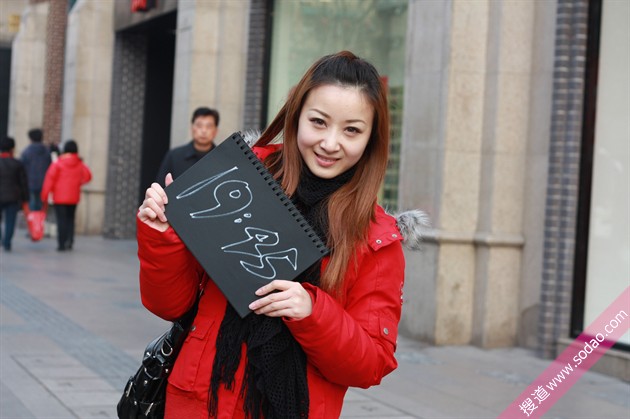 19:45
搜道www.sodao.com